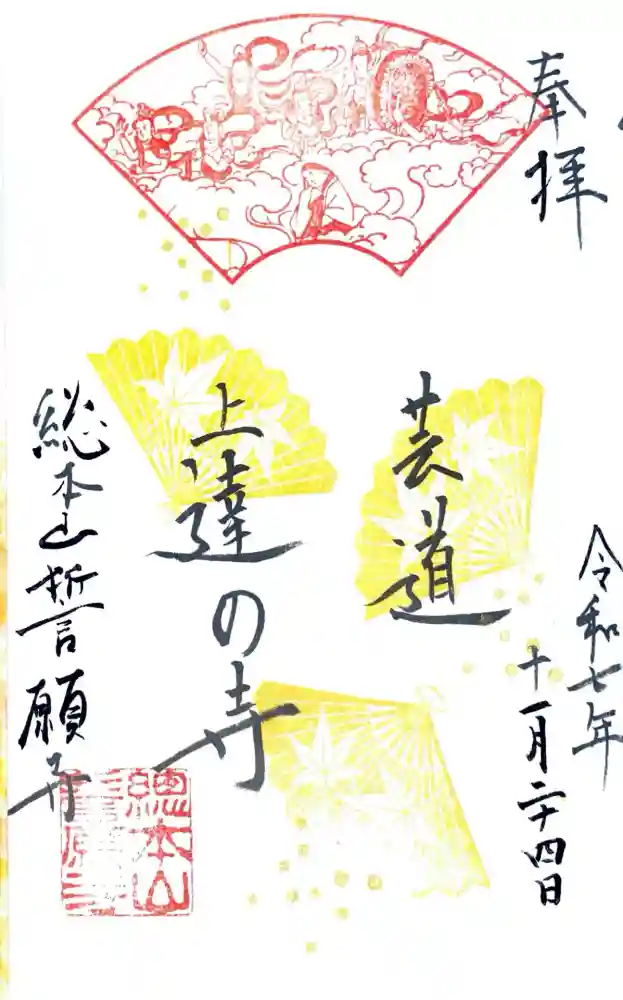 奉拝
令和七年
十一月二十四日
芸道
上達の寺
総本山誓願寺
總本山
誓願寺